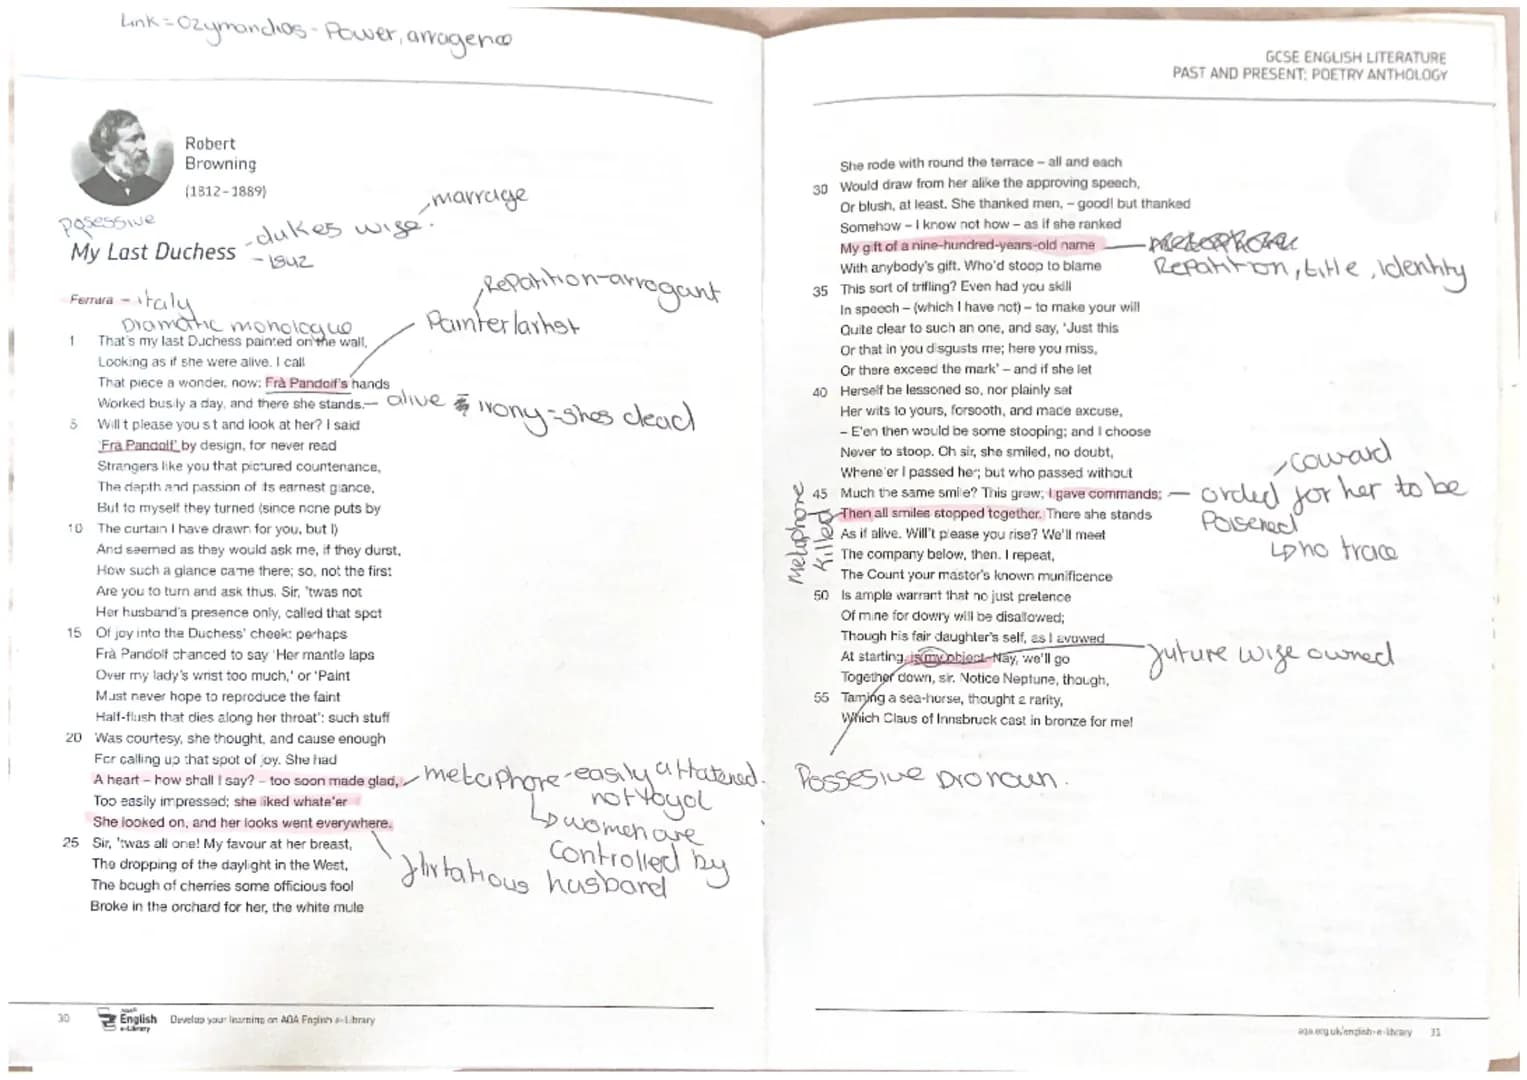 Link = Ozymandias - Power, arragence
Robert
Browning
(1812-1889)
posessive
My Last Duchess
- dukes wife. marrage
- 1842
Ferrara - italy
Dramatic monologue
Repatition - arrogant
Painter/artist
1 That's my last Duchess painted on the wall,
Looking as if she were alive. I call
That piece a wonder, now: Frà Pandolf's hands
Worked busily a day, and there she stands.
alive irony = shes dead
5 Will't please you sit and look at her? I said
'Frà Pandolf' by design, for never read
Strangers like you that pictured countenance,
The depth and passion of its earnest glance,
But to myself they turned (since none puts by
10 The curtain I have drawn for you, but I)
And seemed as they would ask me, if they durst,
How such a glance came there; so, not the first
Are you to turn and ask thus. Sir, 'twas not
Her husband's presence only, called that spot
15 Of joy into the Duchess' cheek: perhaps
Frà Pandolf chanced to say 'Her mantle laps
Over my lady's wrist too much,' or 'Paint
Must never hope to reproduce the faint
Half-flush that dies along her throat': such stuff
20 Was courtesy, she thought, and cause enough
For calling up that spot of joy. She had
A heart – how shall I say? – too soon made glad,
Too easily impressed; she liked whate'er
She looked on, and her looks went everywhere.
metaphore - easily
women are
controlled by
husband
flirtatious
25 Sir, 'twas all one! My favour at her breast,
The dropping of the daylight in the West,
The bough of cherries some officious fool
Broke in the orchard for her, the white mule
30 English e-Library Develop your learning on AQA English e-Library
GCSE ENGLISH LITERATURE
PAST AND PRESENT: POETRY ANTHOLOGY
She rode with round the terrace – all and each
30 Would draw from her alike the approving speech,
Or blush, at least. She thanked men, – good! but thanked
Somehow – I know not how – as if she ranked
My gift of a nine-hundred-years-old name
Repatition, title, identity
With anybody's gift. Who'd stoop to blame
35 This sort of trifling? Even had you skill
In speech – (which I have not) – to make your will
Quite clear to such an one, and say, 'Just this
Or that in you disgusts me; here you miss,
Or there exceed the mark' – and if she let
40 Herself be lessoned so, nor plainly set
Her wits to yours, forsooth, and mace excuse,
– E'en then would be some stooping; and I choose
Never to stoop. Oh sir, she smiled, no doubt,
Whene'er I passed her; but who passed without
45 Much the same smile? This grew; I gave commands;
Then all smiles stopped together. There she stands
coward
orded for her to be
Poisened
no trace
Metaphore
killed
As if alive. Will't please you rise? We'll meet
The company below, then. I repeat,
The Count your master's known munificence
50 Is ample warrant that no just pretence
Of mine for dowry will be disallowed;
Though his fair daughter's self, as I avowed
At starting, is my object. Nay, we'll go
future wife owned
Together down, sir. Notice Neptune, though,
55 Taming a sea-horse, thought a rarity,
Which Claus of Innsbruck cast in bronze for me!
Possesive pronoun.
aqa.org.uk/english-e-library 31